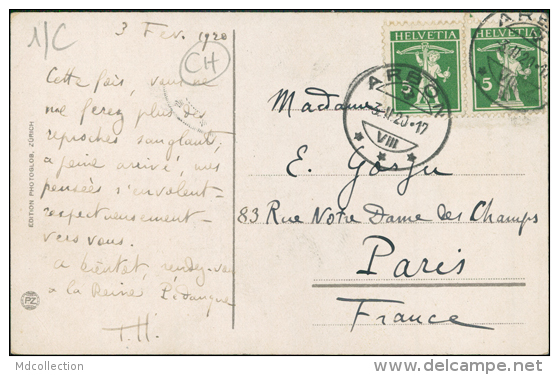 1/C
3 Fev. 1920
CH
Cette fois, vous ne
me ferez plus
reproches sanglants;
à peine arrivé, mes
pensées s'envolent
respectueusement
vers vous.
A bientôt, rendez-vous
à la Reine Pédauque
T.H.
EDITION PHOTOGLOB, ZÜRICH
PZ
HELVETIA
HELVETIA
5
ARBON
-3.II.20-17
VIII
ARB
3.II.20-17
VIII
Madame
E. Gosju
83 Rue Notre Dame des Champs
Paris
France
Mdcollection
delcampe.net